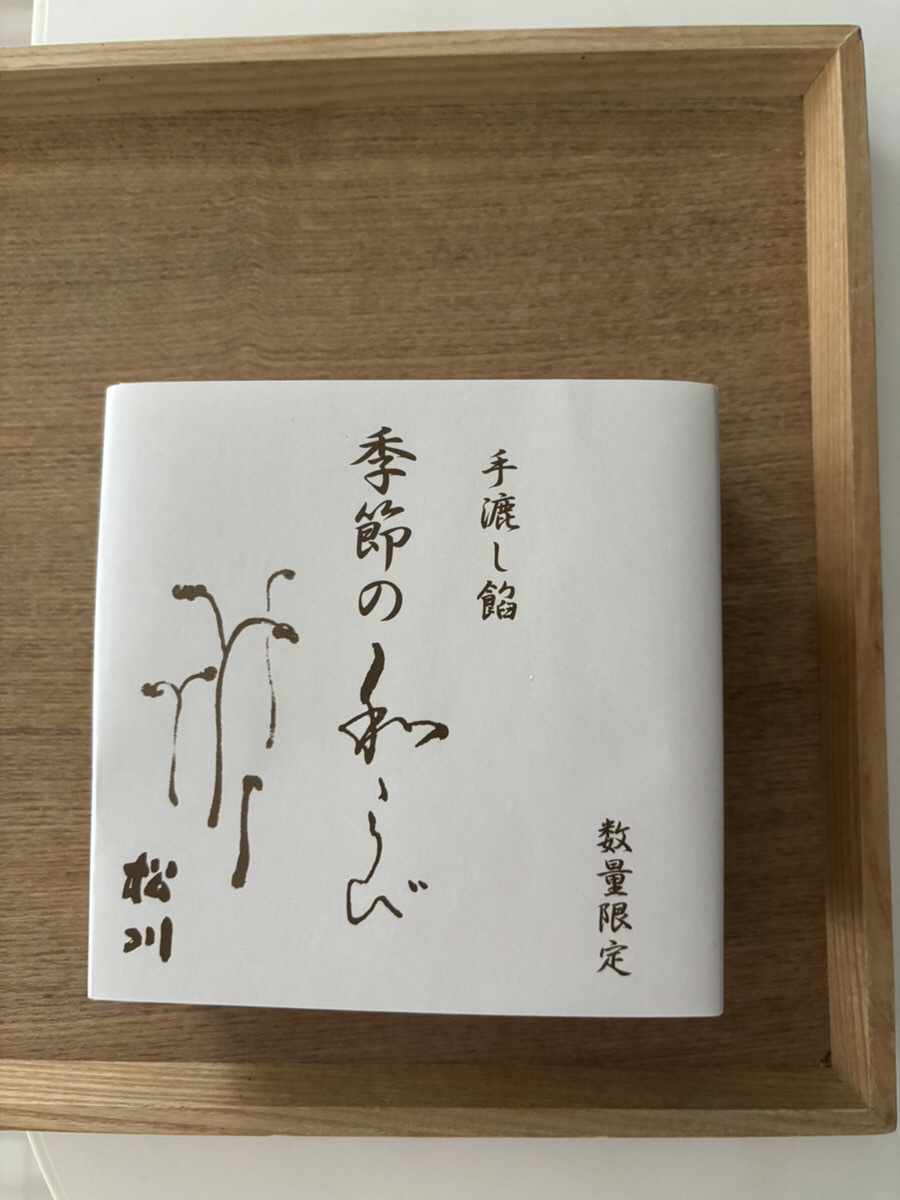 手漉し餡
数量限定
季節の和らび
松川